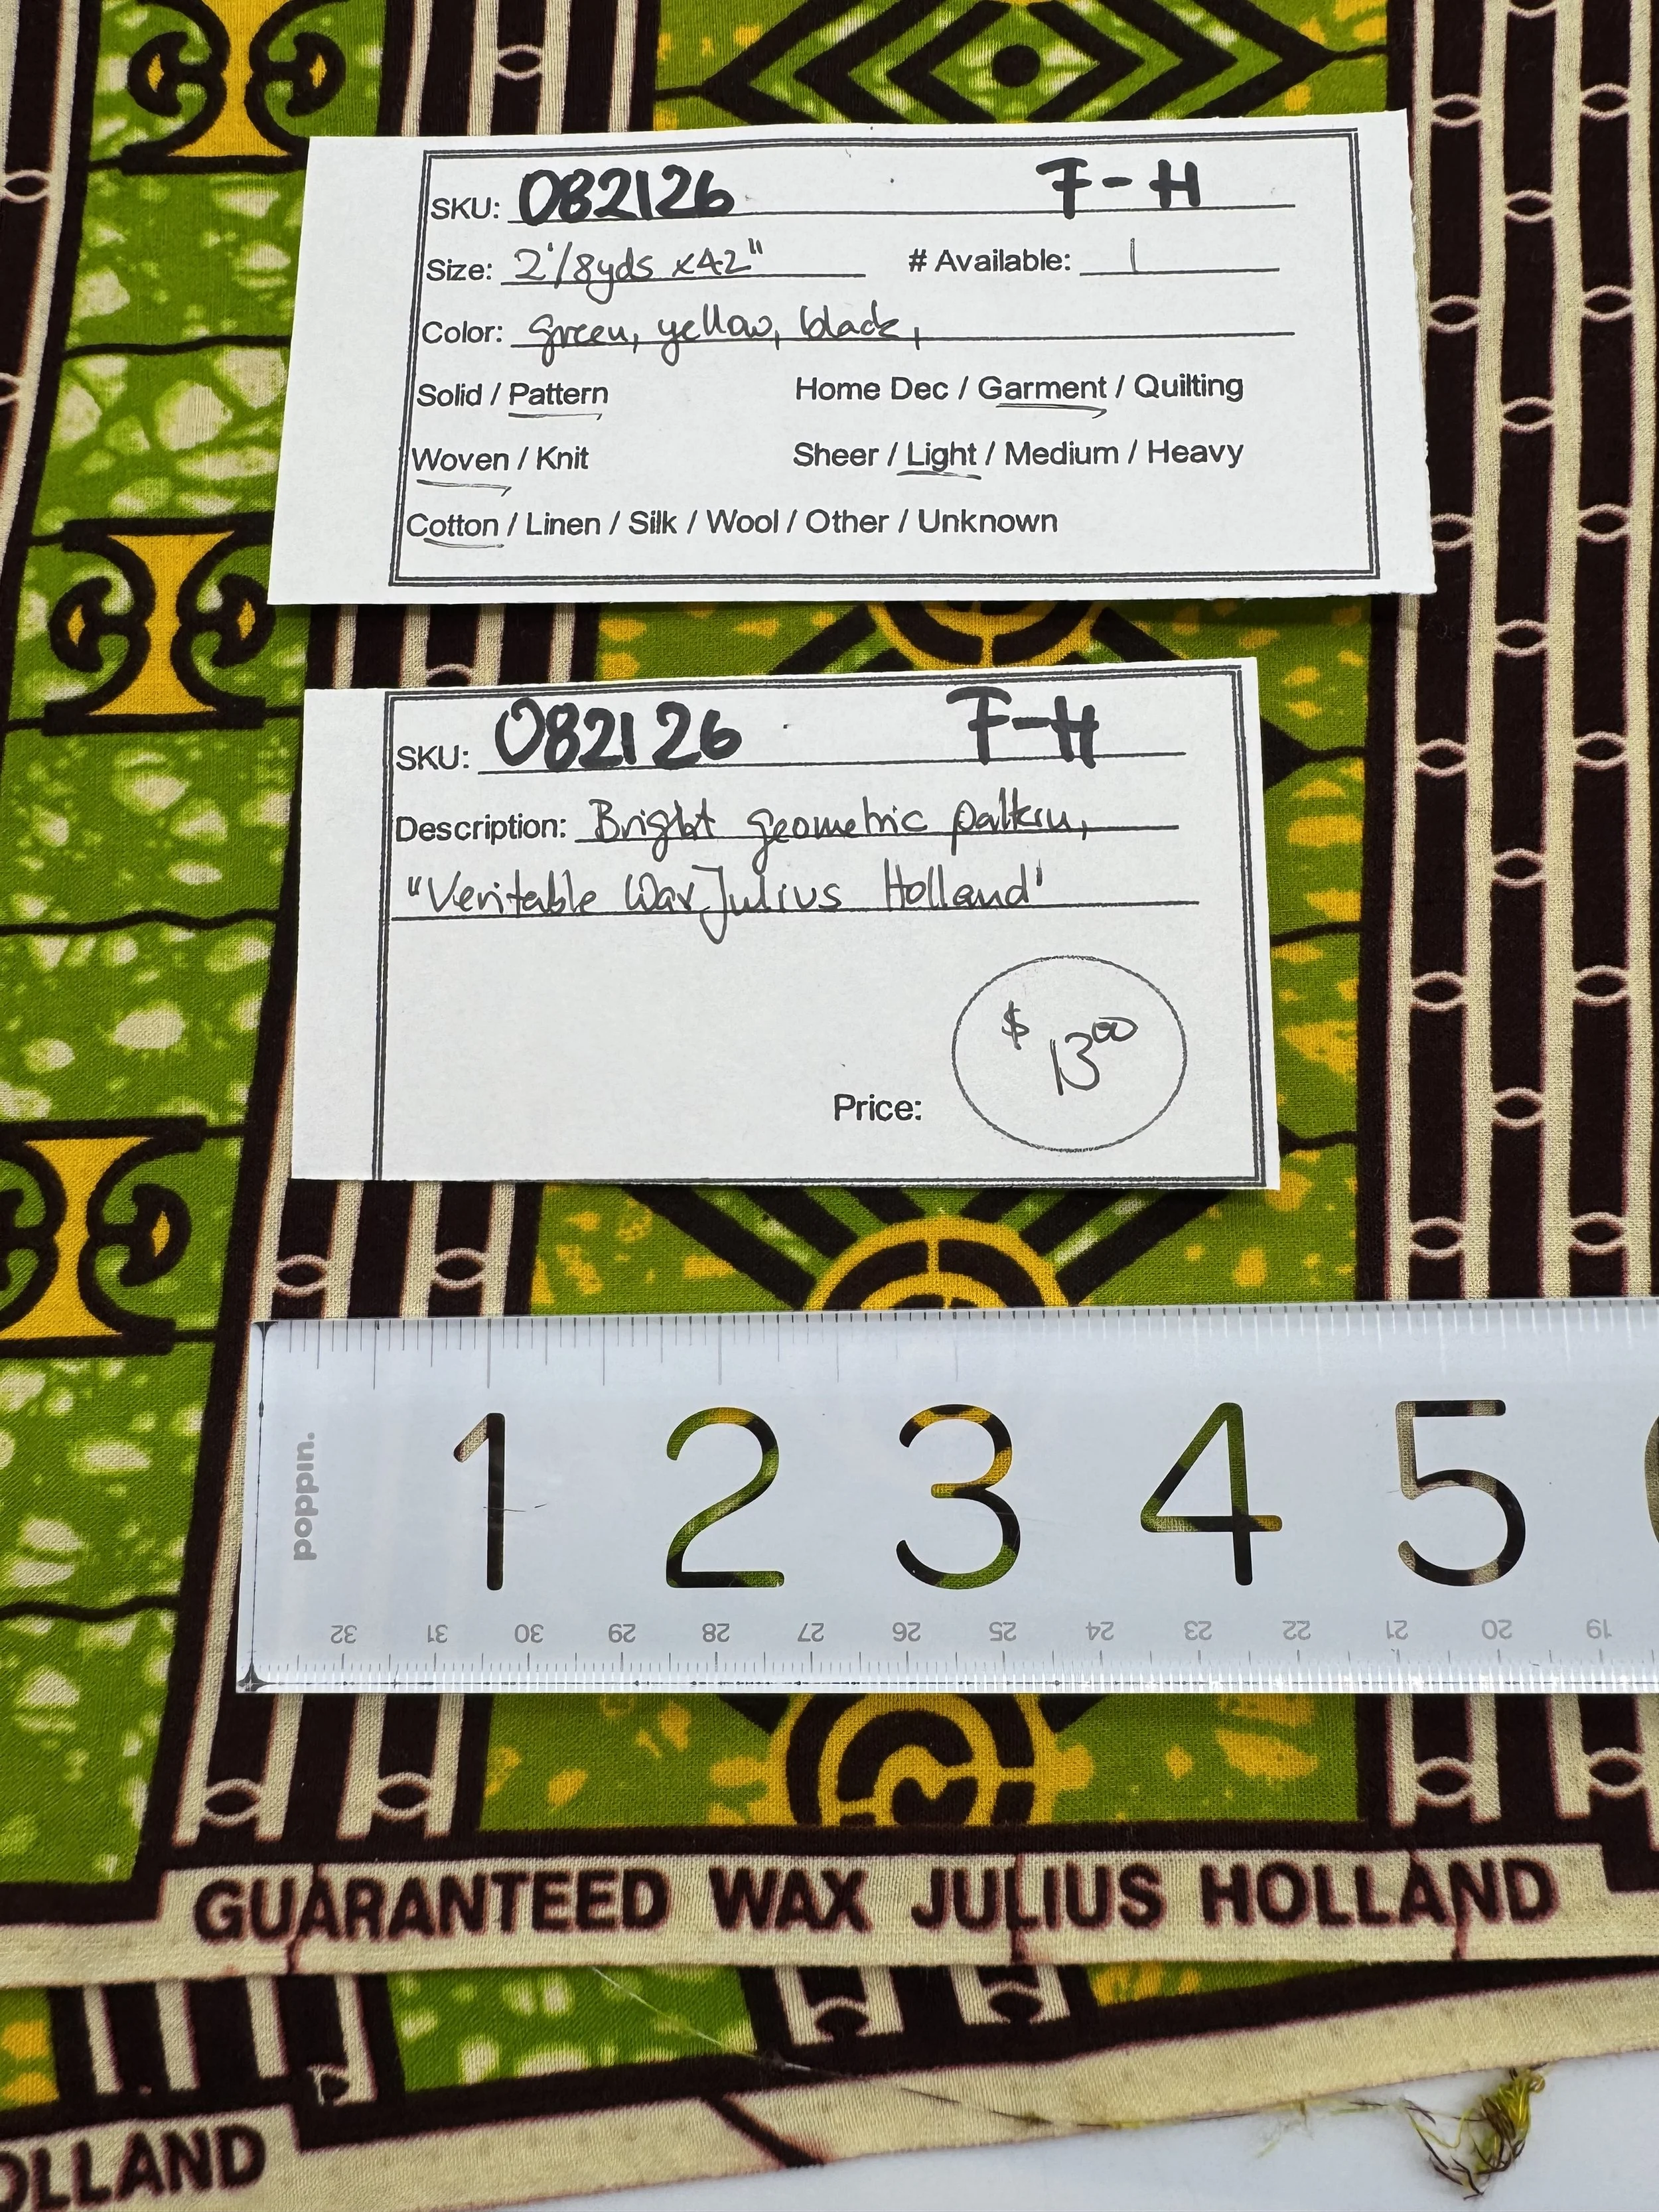 SKU: 082126 F-H
Size: 2 1/8yds x42" # Available: 1
Color: green, yellow, black,
Solid / Pattern Home Dec / Garment / Quilting
Woven / Knit Sheer / Light / Medium / Heavy
Cotton / Linen / Silk / Wool / Other / Unknown
SKU: 082126 F-H
Description: Bright geometric pattern,
"Veritable Wax Julius Holland"
$ 13.00
Price:
poppin.
1 2 3 4 5
32 31 30 29 28 27 26 25 24 23 22 21 20 19
GUARANTEED WAX JULIUS HOLLAND
OLLAND